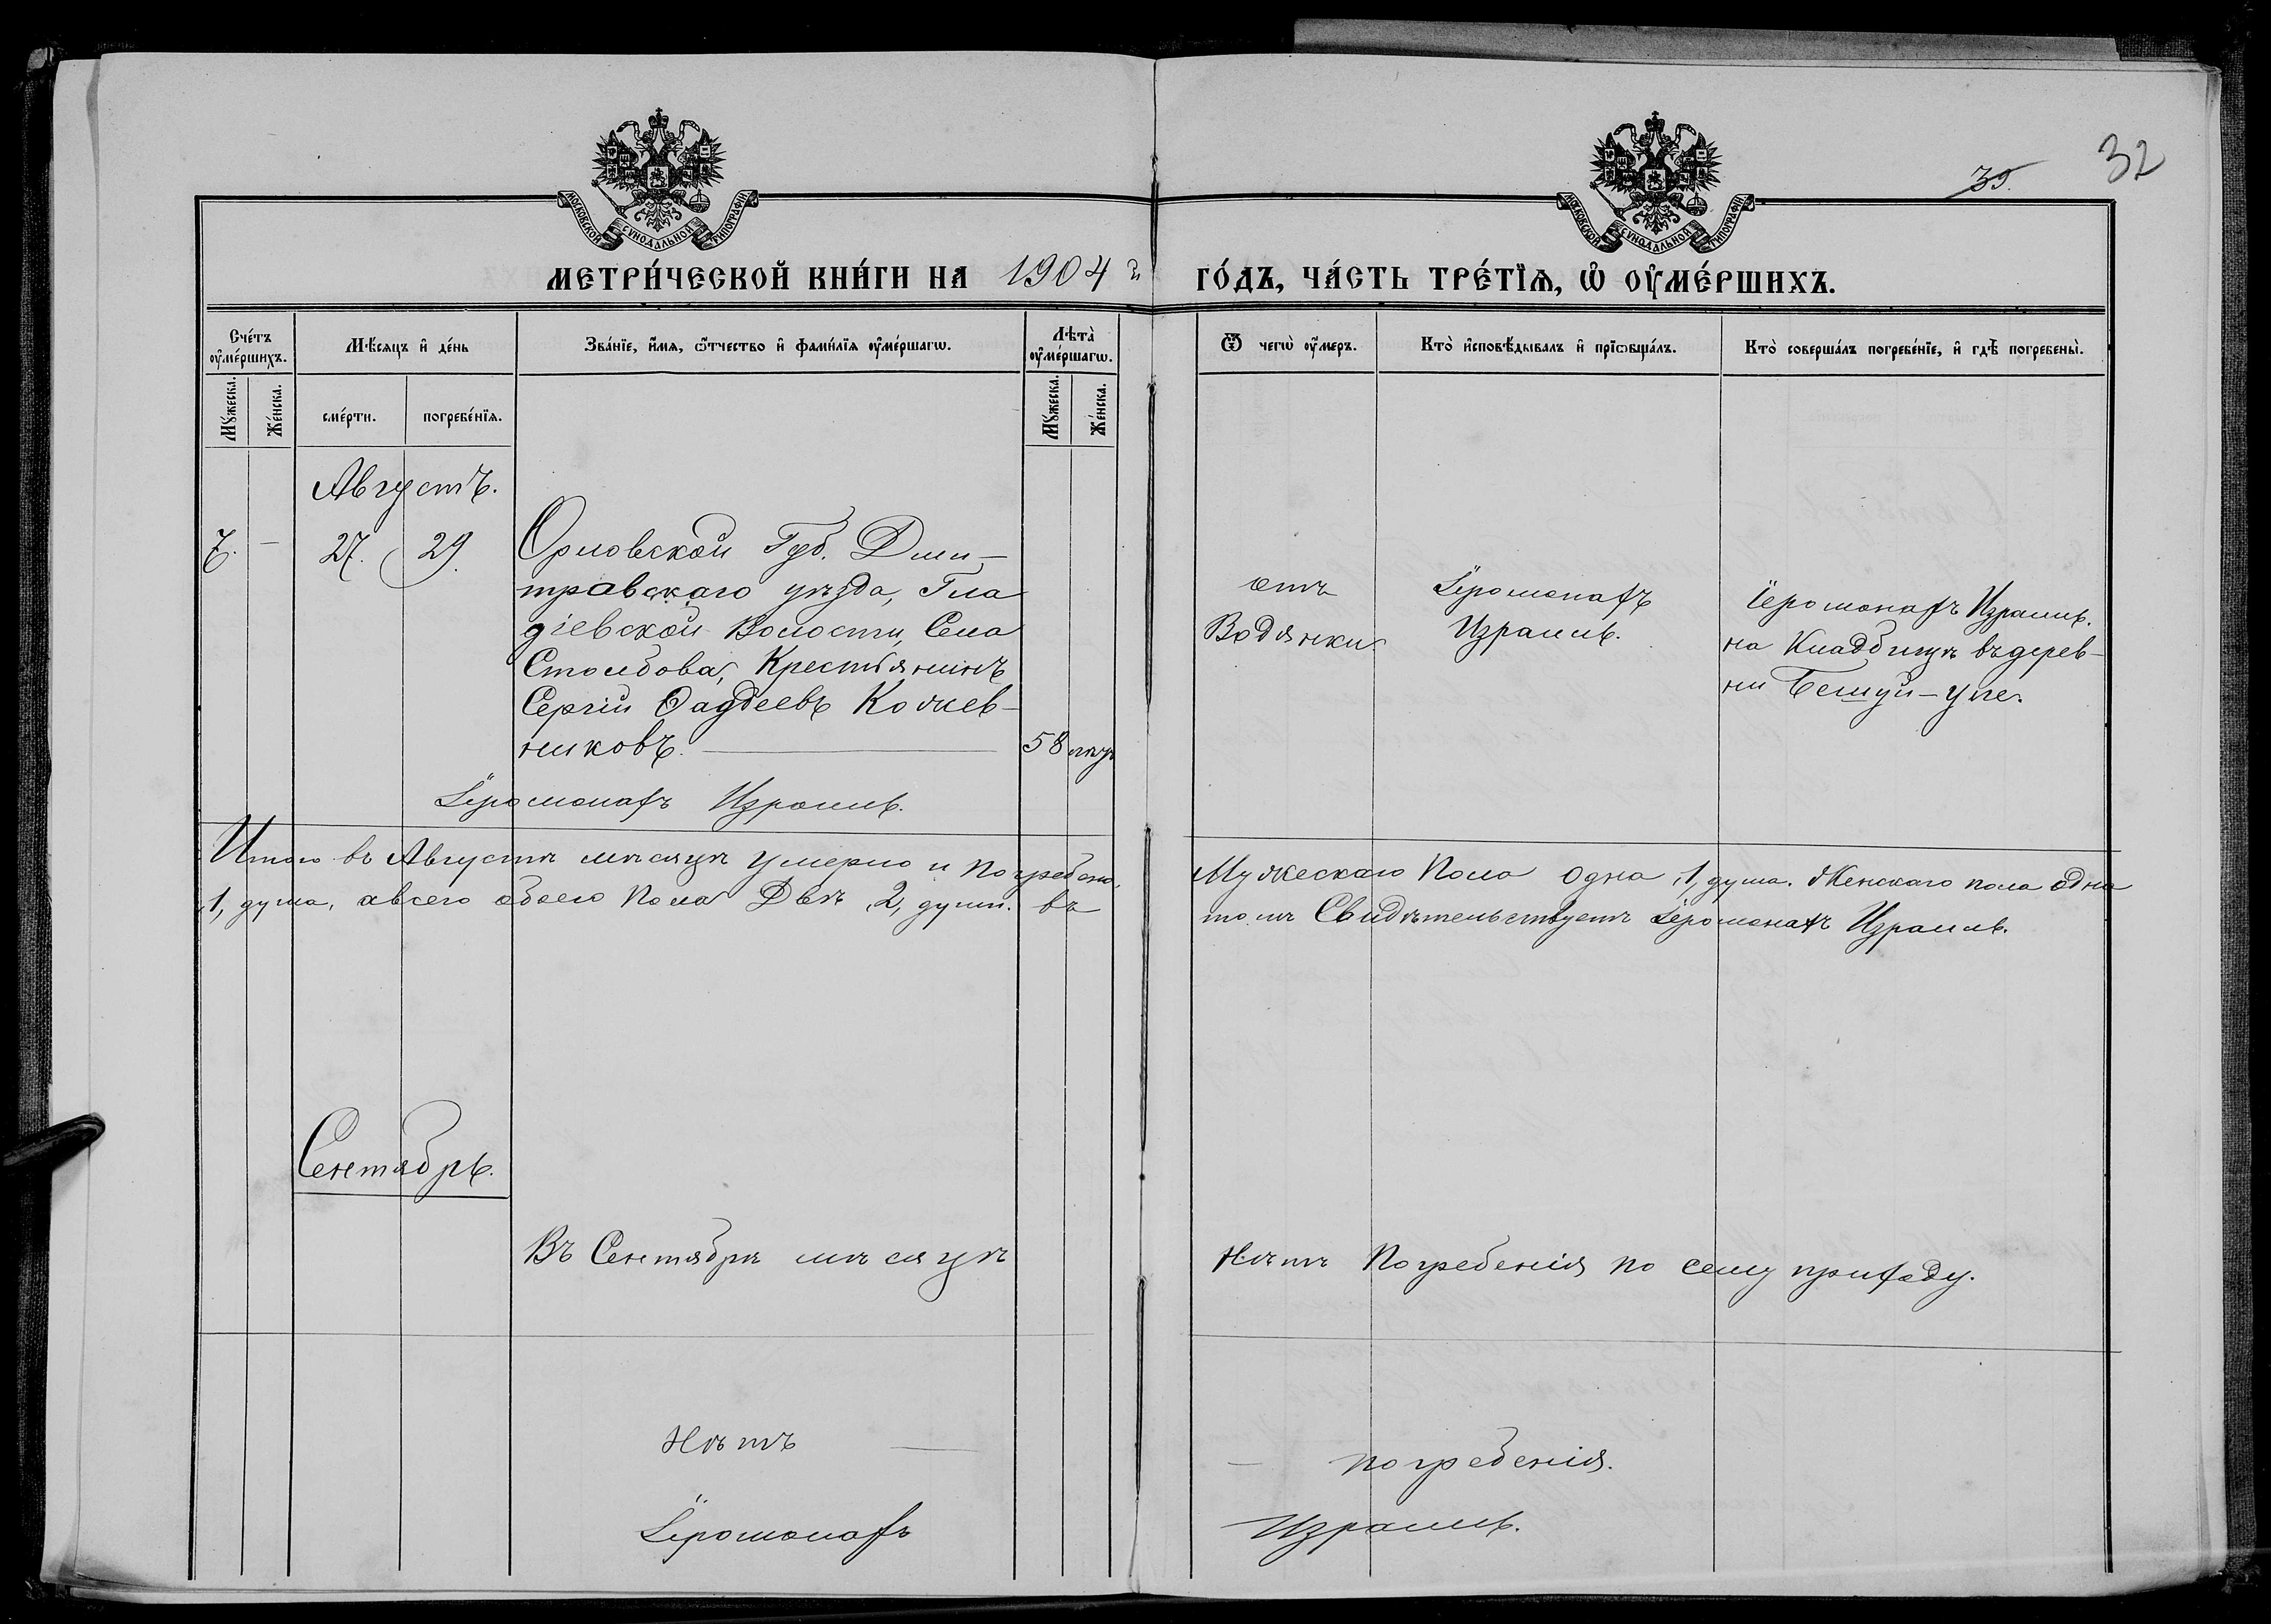 35.
32
МОСКОВСКОЙ СѴНОДАЛЬНОЙ ТИПОГРАФІИ
МОСКОВСКОЙ СѴНОДАЛЬНОЙ ТИПОГРАФІИ
МЕТРИ́ЧЕСКОЙ КНИ́ГИ НА 1904 г.
ГО́ДЪ, ЧА́СТЬ ТРЕ́ТЇѦ, Ѡ҆ ОУ҆МЕ́РШИХЪ.
Сче́тъ оу҆ме́ршихъ.
Мꙋ́жеска.
Же́нска.
Мѣ́сяцъ и҆ де́нь
сме́рти.
погребе́нїѧ.
Зва́нїе, и҆́мѧ, ѻ҆́тчество и҆ фами́лїѧ оу҆ме́ршагѡ.
Лѣта̀ оу҆ме́ршагѡ.
Мꙋ́жеска.
Же́нска.
Ѿ чегѡ̀ оу҆́меръ.
Кто̀ и҆сповѣ́дывалъ и҆ прїѡбща́лъ.
Кто̀ соверша́лъ погребе́нїе, и҆ гдѣ̀ погребены̀.
Августъ.
7. — 27. 29. Орловской Губ. Дми-
тровскаго уѣзда, Гла
діевской Волости, Села
Столбова, Крестьянинъ
Сергій Ѳаддеевъ Кожев-
никовъ. 58 лѣтъ
отъ
Водянки
Іеромонахъ
Израиль.
Іеромонахъ Израиль.
на Кладбищѣ въ дерев-
ни Бешуй-Уле.
Іеромонахъ Израиль.
Итого въ Августѣ мѣсяцѣ умерло и погребено,
Мужескаго Пола одна ,1, душа. Женскаго пола одна
,1, душа, авсего обоего Пола Двѣ ,2, души. въ
томъ Свидѣтельствуетъ Іеромонахъ Израиль.
Сентябрь.
Въ Сентябрѣ мѣсяцѣ
Нѣтъ Погребенія по сему приходу.
Нѣтъ —
— погребенія.
Іеромонахъ
Израиль.